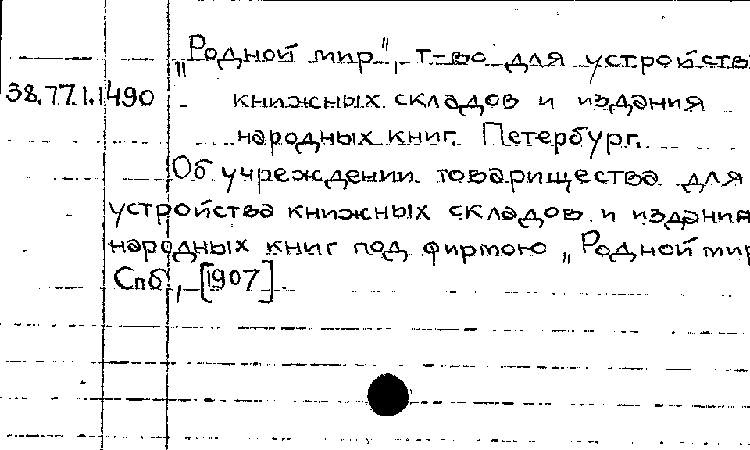 „Родной мир", т-во для устройств
38.77.1.1490 книжных складов и издания
народных книг. Петербург.
Об учреждении товарищества для
устройства книжных складов и издания
народных книг под фирмою „Родной мир
Спб., [1907]